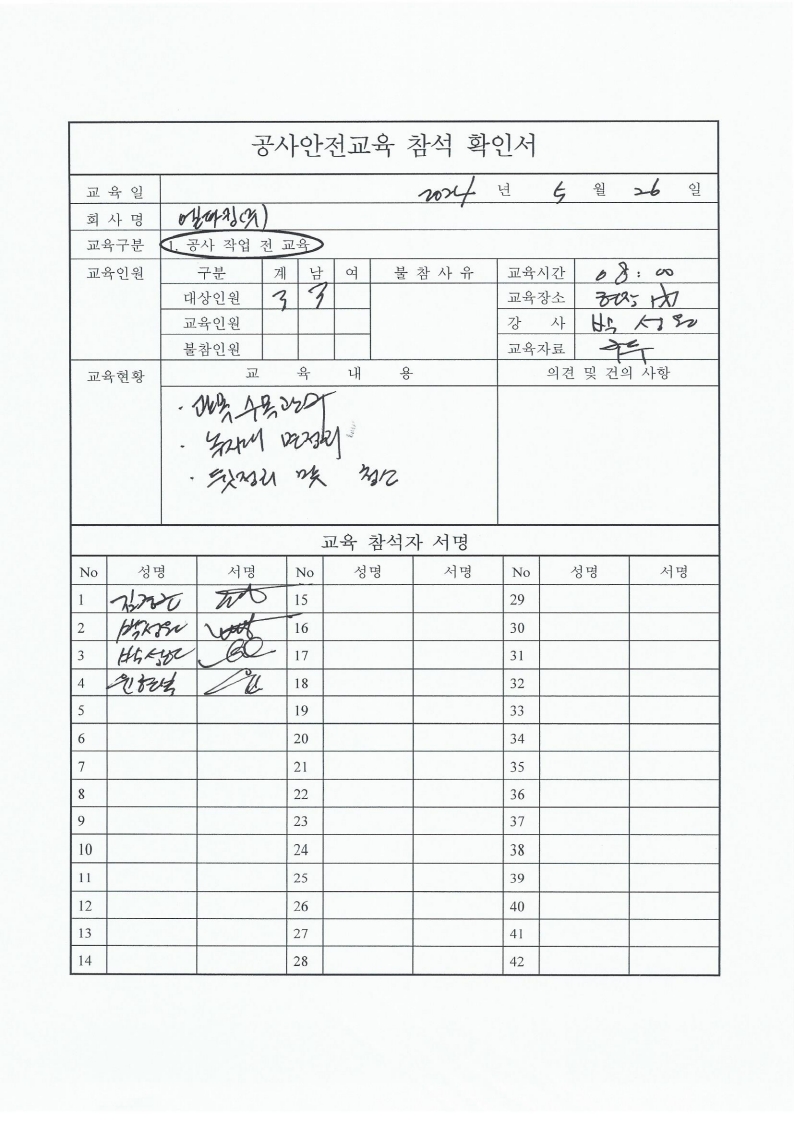 공사안전교육 참석 확인서
교 육 일 2024 년 5 월 26 일
회 사 명 엘파킹(주)
교육구분 1. 공사 작업 전 교육
교육인원 구분 계 남 여 불 참 사 유 교육시간 08 : 00
대상인원 3 3 교육장소 현장 내
교육인원 강 사 박 성원
불참인원 교육자료 구두
교육현황 교 육 내 용 의견 및 건의 사항
· 수목관리
· 녹지대 면정리
· 뒷정리 및 청소
교육 참석자 서명
No 성명 서명 No 성명 서명 No 성명 서명
1 15 29
2 박성원 16 30
3 17 31
4 18 32
5 19 33
6 20 34
7 21 35
8 22 36
9 23 37
10 24 38
11 25 39
12 26 40
13 27 41
14 28 42